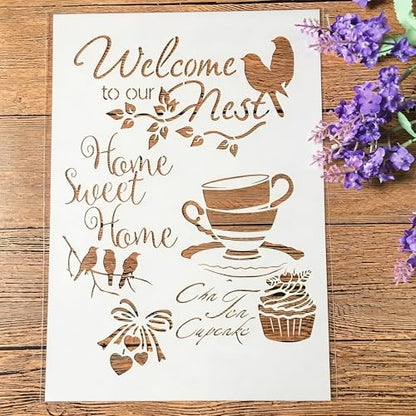 Welcome
to our
Nest
Home
Sweet
Home
Cha Tea
Cupcake